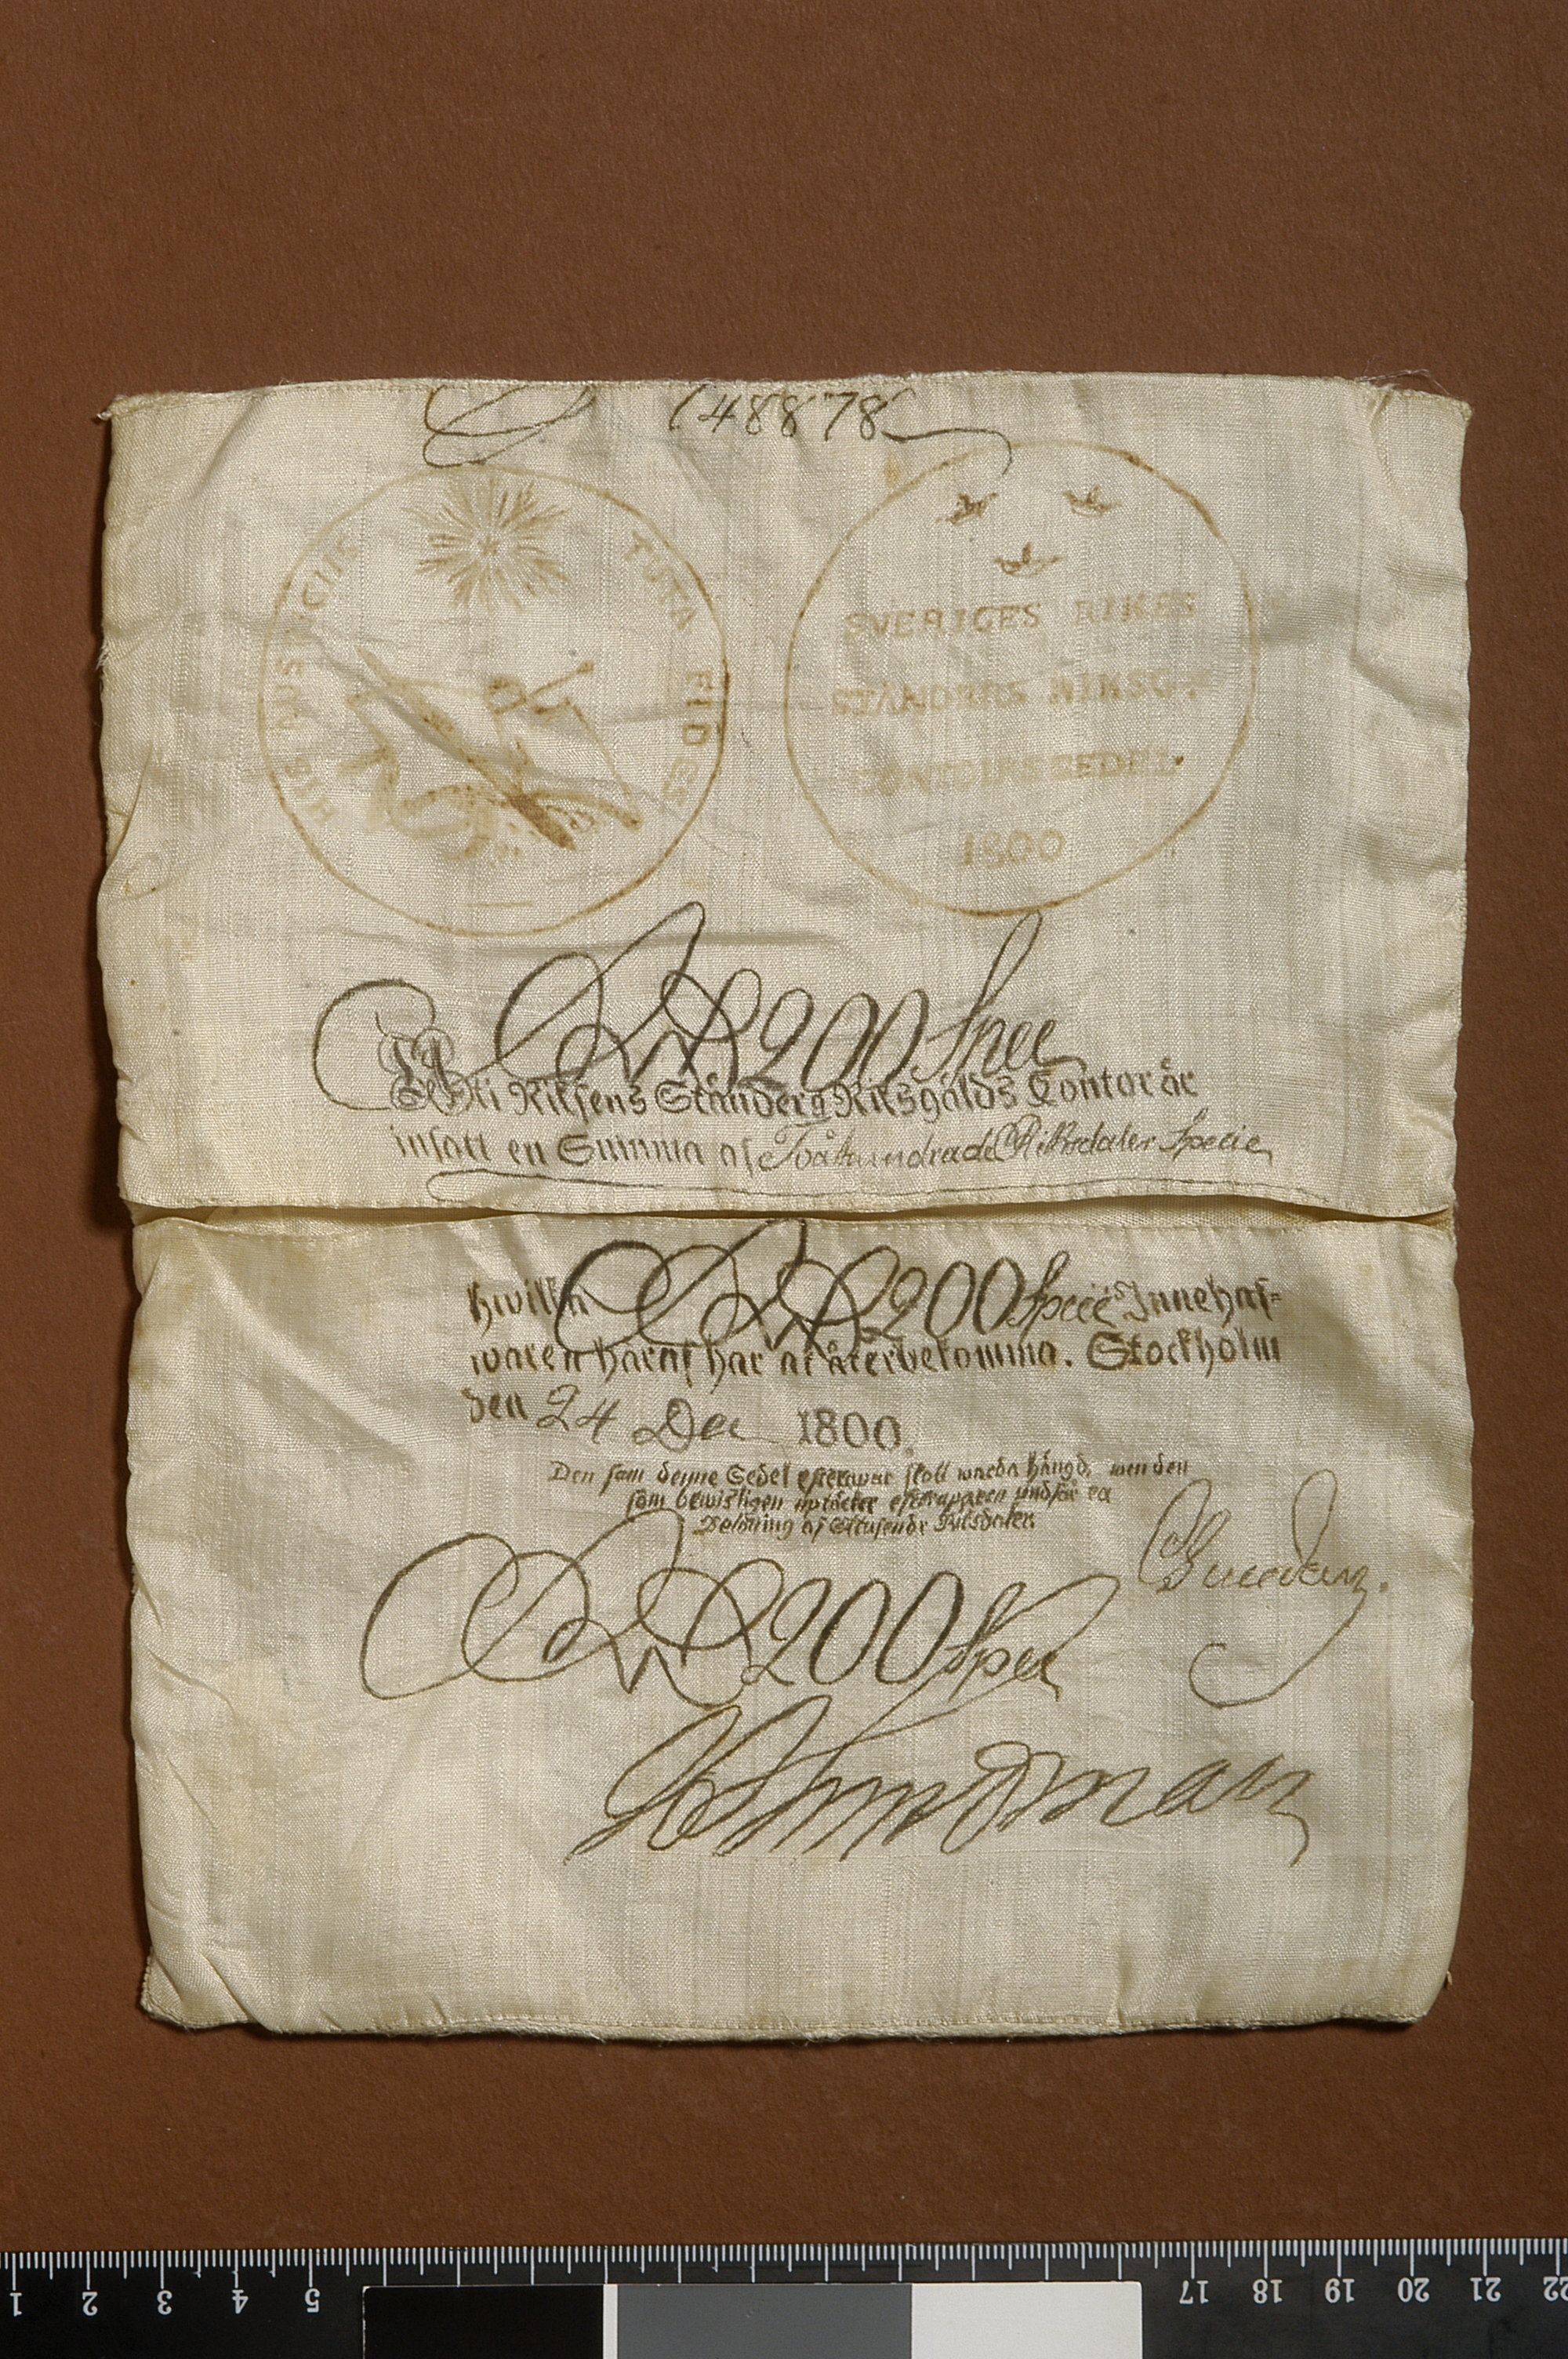 148878
HIS AUSPICIIS TUTA FIDES
SVERIGES RIKES
STÄNDERS RIKSG:
CONTOIRS SEDEL.
1800
RdR 200 Specie
Uti Riksens Ständers Riksgälds Contor är
insatt en Summa af Tvåhundrade Riksdaler Specie
hwilka RdR 200 Specie Innehaf=
waren häraf har at återbekomma. Stockholm
den 24 Dec 1800.
Den som denne Sedel efterapar skall warda hängd, men den
som bewisligen uptäcker efteraparen undfår en
Belöning af Ettusende Riksdaler.
RdR 200 Specie